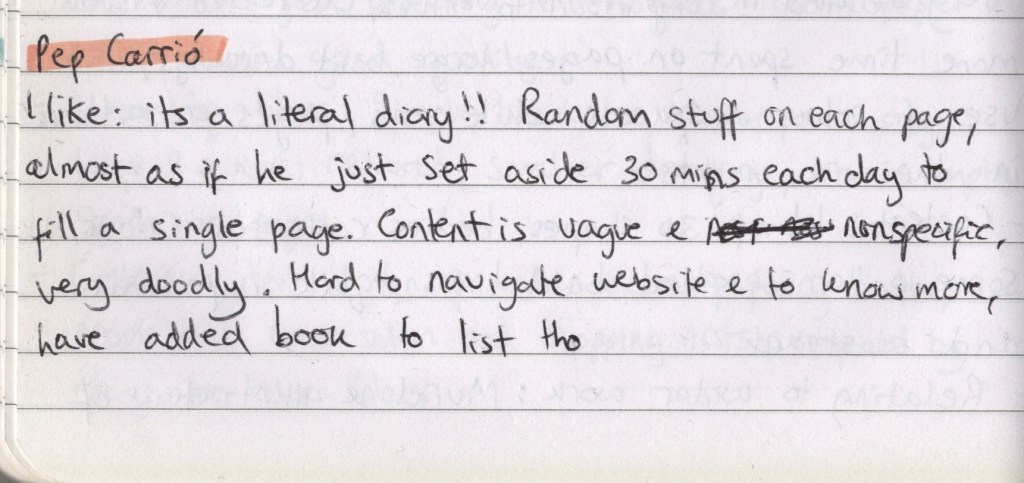 Pep Carrió
I like. its a literal diary!! Random stuff on each page,
almost as if he just set aside 30 mins each day to
fill a single page. Content is vague & nonspecific,
very doodly. Hard to navigate website & to know more,
have added book to list tho